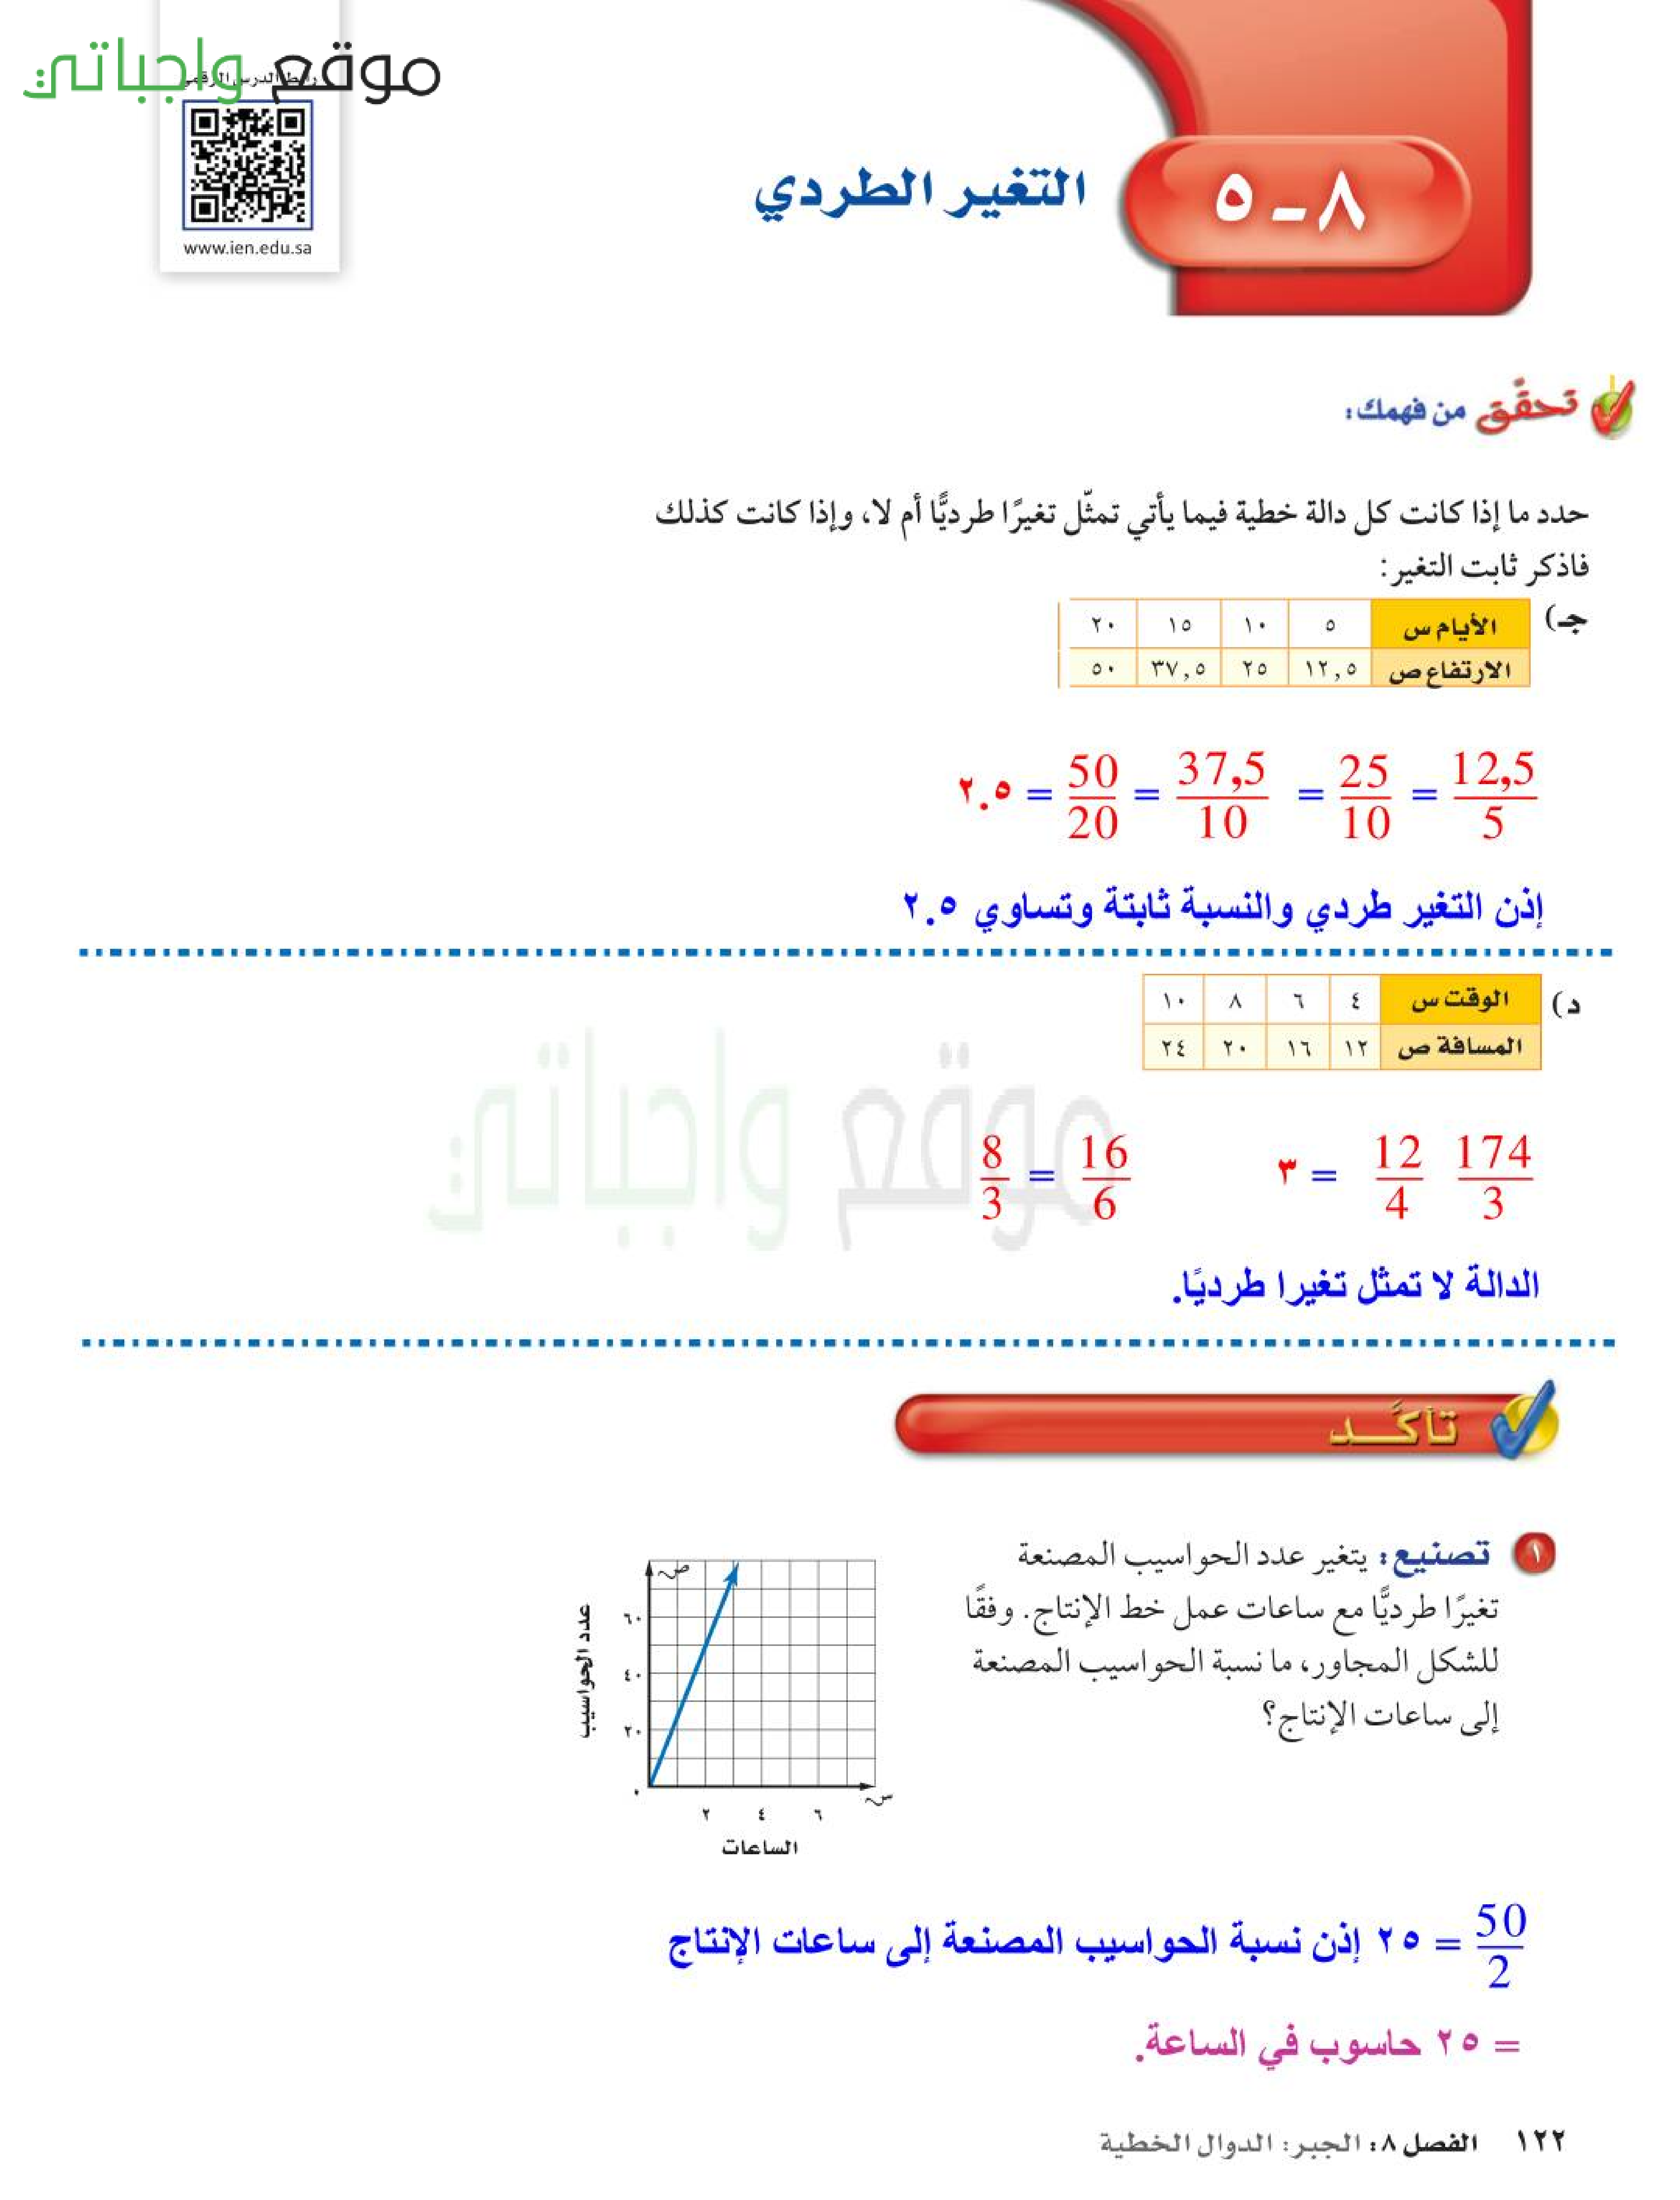 موقع واجباتي
رابط الدرس الرقمي
www.ien.edu.sa
٨-٥
التغير الطردي
تحقَّق من فهمك:
حدد ما إذا كانت كل دالة خطية فيما يأتي تمثّل تغيرًا طرديًّا أم لا، وإذا كانت كذلك
فاذكر ثابت التغير:
جـ)
الأيام س ٥ ١٠ ١٥ ٢٠
الارتفاع ص ١٢,٥ ٢٥ ٣٧,٥ ٥٠
12,5/5 = 25/10 = 37,5/10 = 50/20 = ٢.٥
إذن التغير طردي والنسبة ثابتة وتساوي ٢.٥
د)
الوقت س ٤ ٦ ٨ ١٠
المسافة ص ١٢ ١٦ ٢٠ ٢٤
174/3 12/4 = ٣ 16/6 = 8/3
الدالة لا تمثل تغيرا طرديًا.
موقع واجباتي
تأكَّد
١ تصنيع: يتغير عدد الحواسيب المصنعة
تغيرًا طرديًّا مع ساعات عمل خط الإنتاج. وفقًا
للشكل المجاور، ما نسبة الحواسيب المصنعة
إلى ساعات الإنتاج؟
ص
عدد الحواسيب
٦٠
٤٠
٢٠
٠
٢ ٤ ٦
س
الساعات
50/2 = ٢٥ إذن نسبة الحواسيب المصنعة إلى ساعات الإنتاج
= ٢٥ حاسوب في الساعة.
١٢٢ الفصل ٨: الجبر: الدوال الخطية